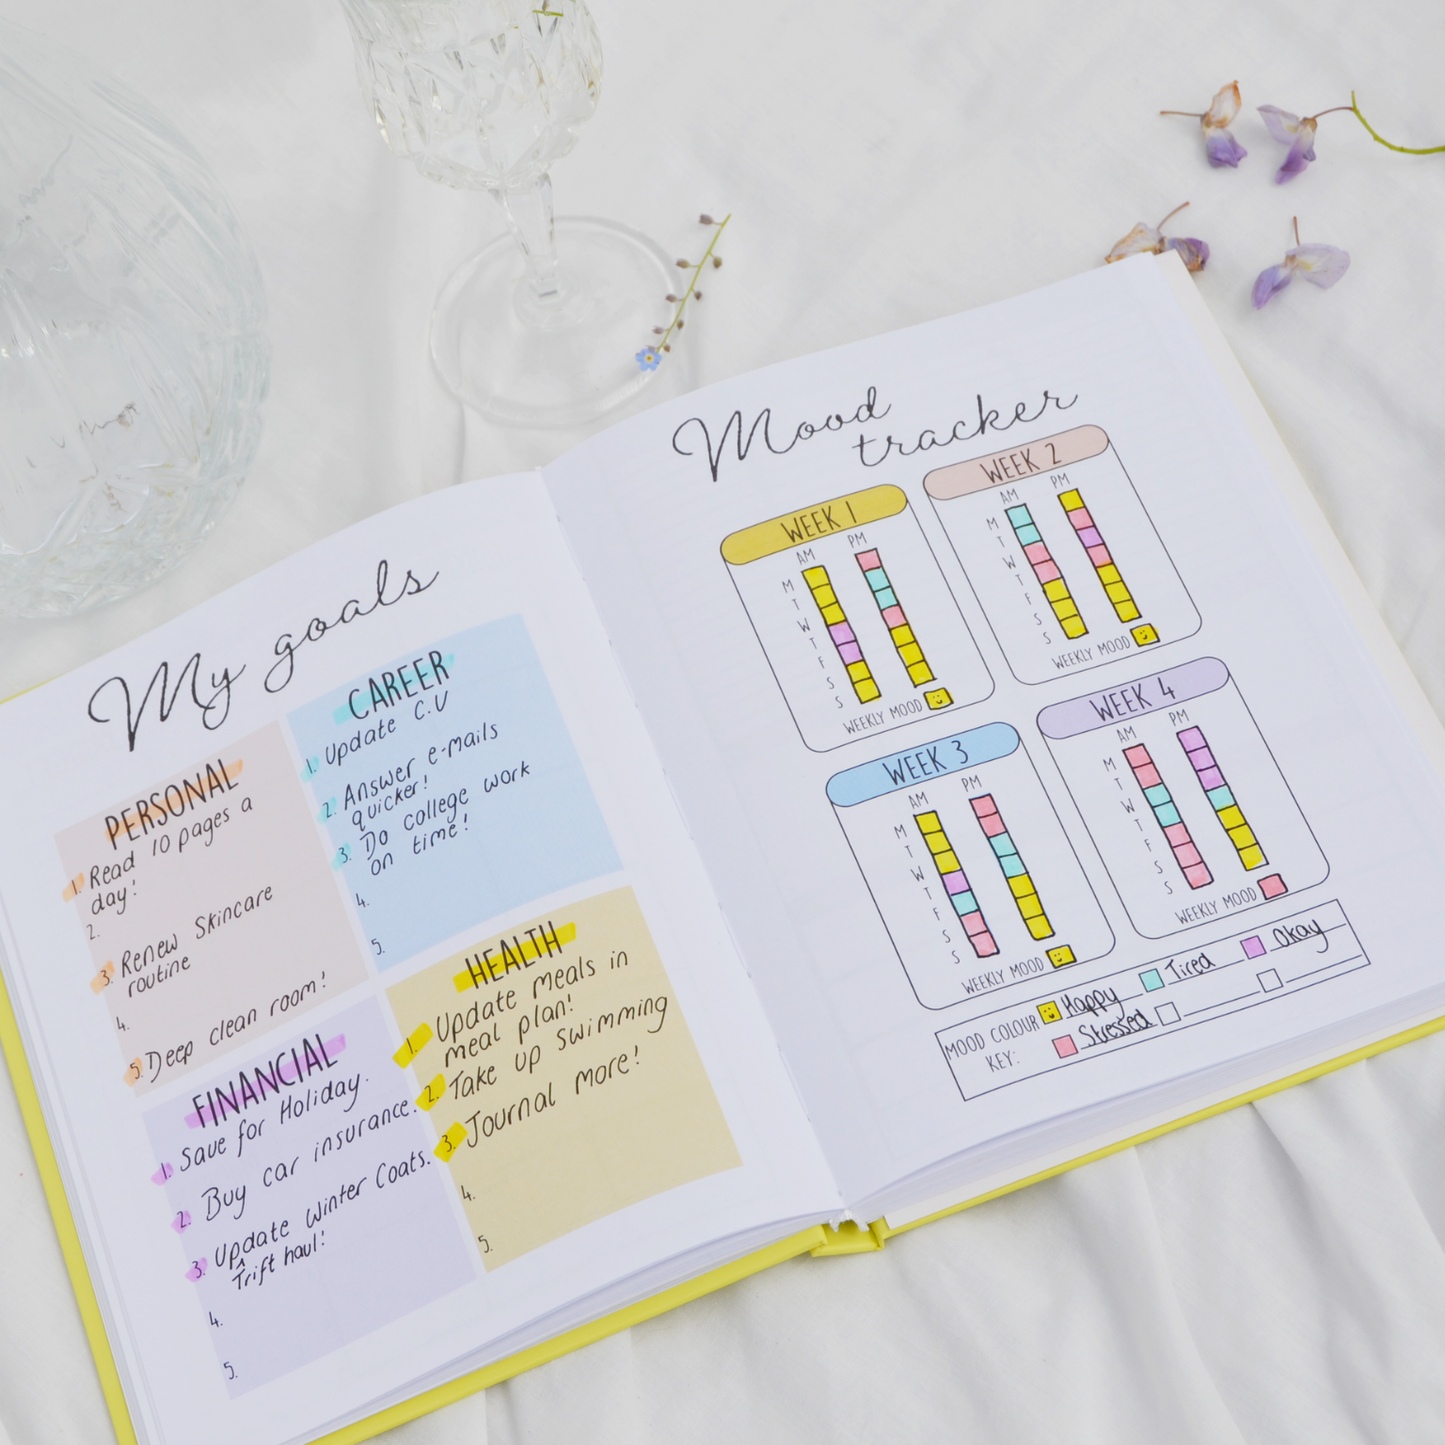 My goals
PERSONAL
1. Read 10 pages a
day!
2.
3. Renew Skincare
routine
4.
5. Deep clean room!
CAREER
1. Update C.V
2. Answer e-mails
quicker!
3. Do college work
on time!
4.
5.
FINANCIAL
1. Save for Holiday.
2. Buy car insurance.
3. Update Winter Coats.
Trift haul!
4.
5.
HEALTH
1. Update meals in
meal plan!
2. Take up swimming
3. Journal more!
4.
5.
Mood
tracker
WEEK 1
AM PM
M
T
W
T
F
S
S
WEEKLY MOOD
WEEK 2
AM PM
M
T
W
T
F
S
S
WEEKLY MOOD
WEEK 3
AM PM
M
T
W
T
F
S
S
WEEKLY MOOD
WEEK 4
AM PM
M
T
W
T
F
S
S
WEEKLY MOOD
MOOD COLOUR Happy Tired Okay
KEY: Stressed